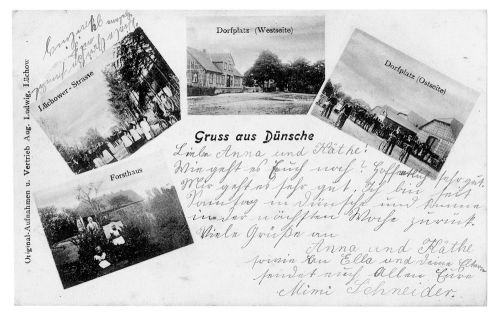 Dorfplatz (Westseite)
Dorfplatz (Ostseite)
Lüchower-Strasse
Forsthaus
Original-Aufnahmen u. Vertrieb Aug. Ludwig, Lüchow
Gruss aus Dünsche
Liebe Anna und Käthe!
Wie geht es Euch noch? Hoffentlich sehr gut.
Mir geht es sehr gut. Ich bin seit
Sonntag in Dünsche und komme
in der nächsten Woche zurück.
Viele Grüße an
Anna und Käthe
sowie an Ella und deine Eltern
sendet euch Allen Eure
Mimi Schneider.